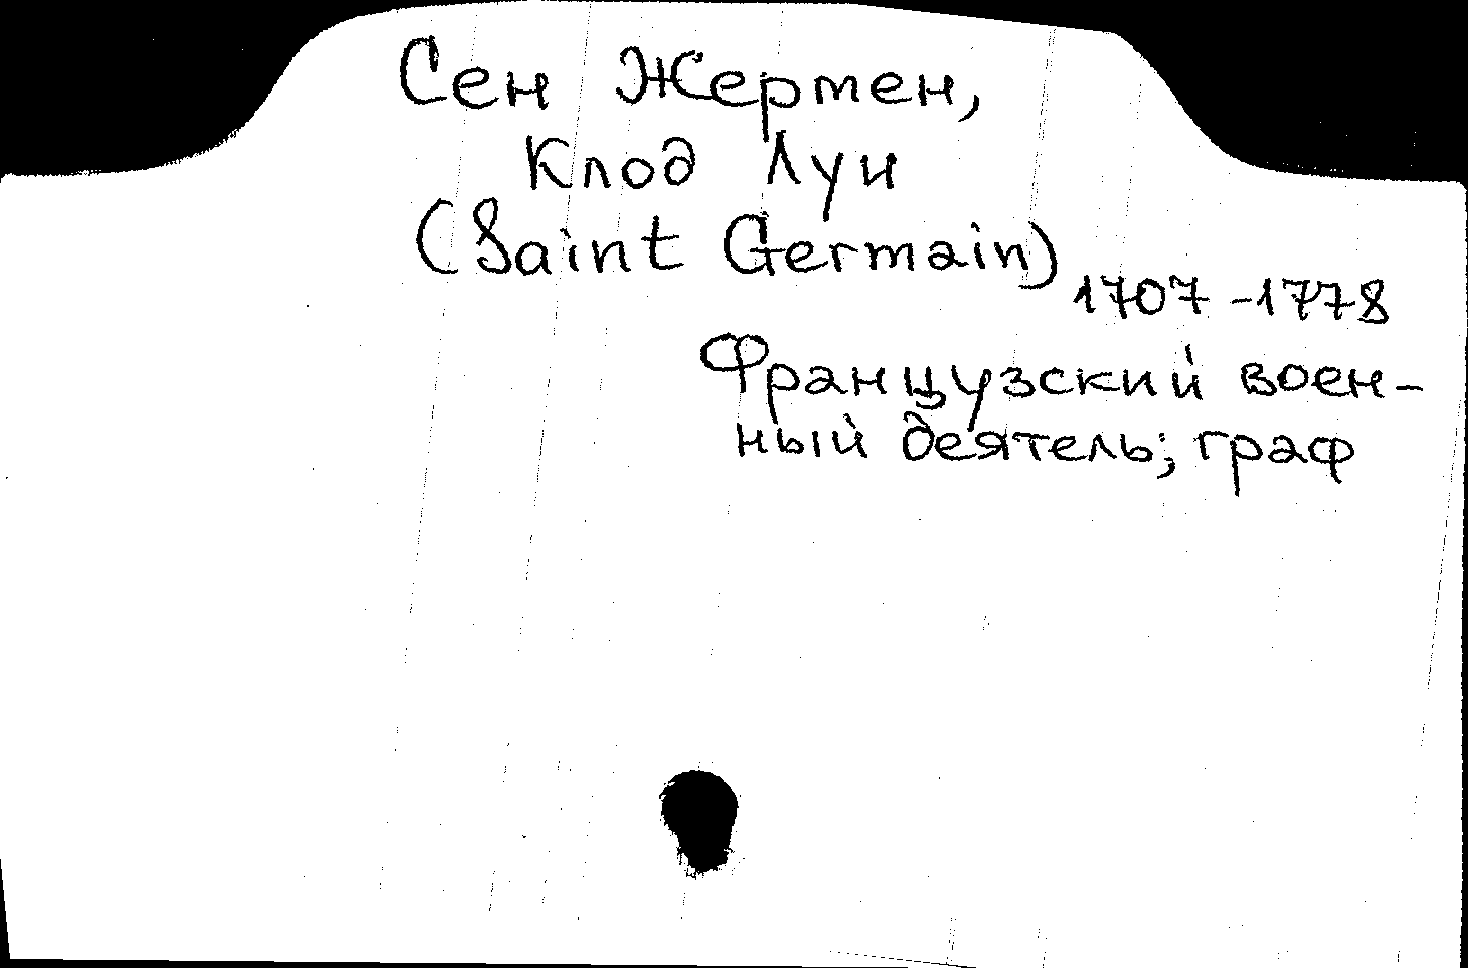 Сен Жермен,
Клод Луи
(Saint Germain)
1707-1778
Французский воен-
ный деятель; граф